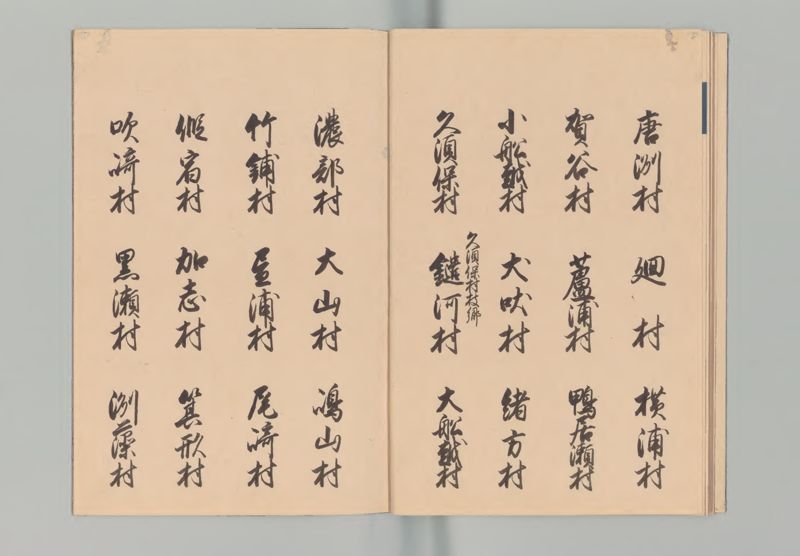 唐洲村　廻村　横浦村
賀谷村　蘆浦村　鴨居瀬村
小船越村　犬吠村　緒方村
久須保村　久須保村枝郷　鑓河村　大船越村
濃部村　大山村　嶋山村
竹鋪村　昼浦村　尾崎村
假宿村　加志村　箕形村
吹崎村　黒瀬村　洲藻村